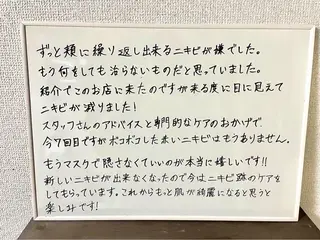 ずっと頬に繰り返し出来るニキビが嫌でした。
もう何をしても治らないものだと思っていました。
紹介でこのお店に来たのですが来る度に目に見えて
ニキビが減りました!
スタッフさんのアドバイスと専門的なケアのおかげで
今7回目ですがボコボコした赤いニキビはもうありません。
もうマスクで隠さなくていいのが本当に嬉しいです!!
新しいニキビが出来なくなったので今はニキビ跡のケアを
してもらっています。これからもっと肌が綺麗になると思うと
楽しみです!